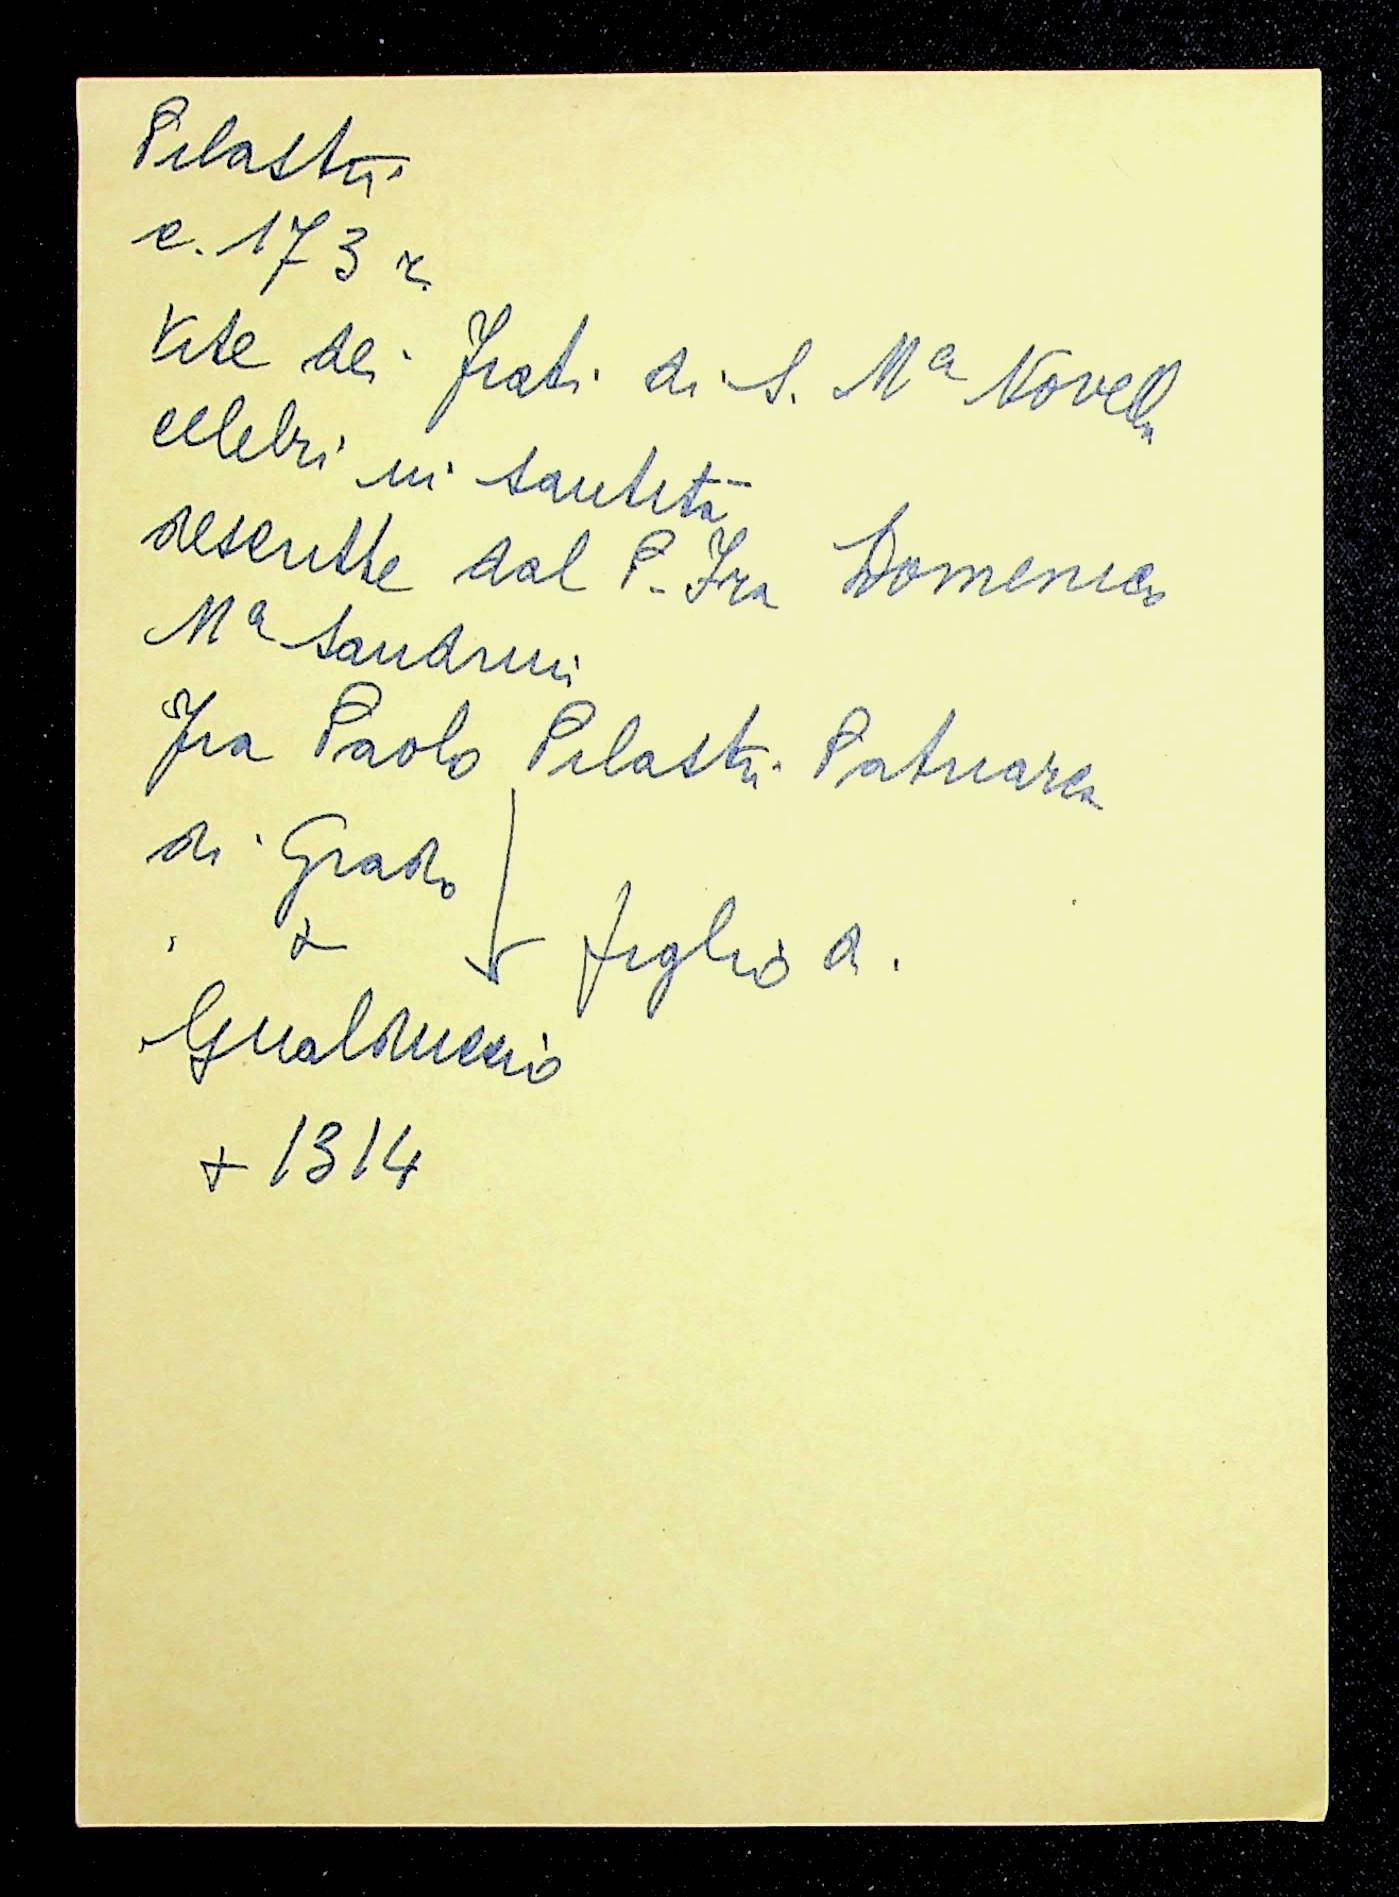 Pilastri
c. 173 r.
Vite dei Frati di S. Mª Novella
celebri in santità
descritte dal P. Fra Domenico
Mª Sandrini
Fra Paolo Pilastri Patriarca
di Grado
+ figlio di
Gualduccio
+ 1314